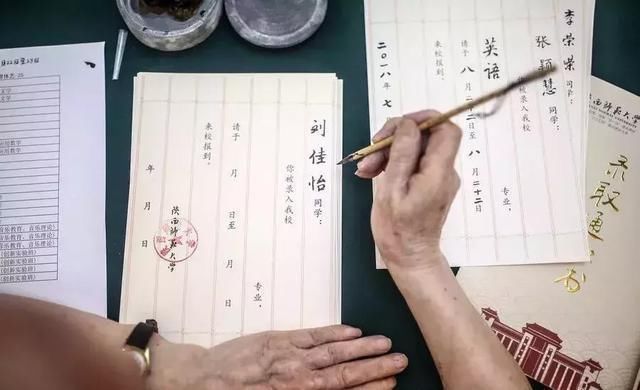 李荣荣同学：
张颖慧同学：
英语 专业，
请于八月
来校报到。
二〇一八年七
刘佳怡同学：
你被录入我校
专业，
请于 月 日至 月 日
来校报到。
陕西师范大学
年 月 日
陕西师范大学
录取通 书
月22日至23日
文学
文学
(创新实验班)
(创新实验班)